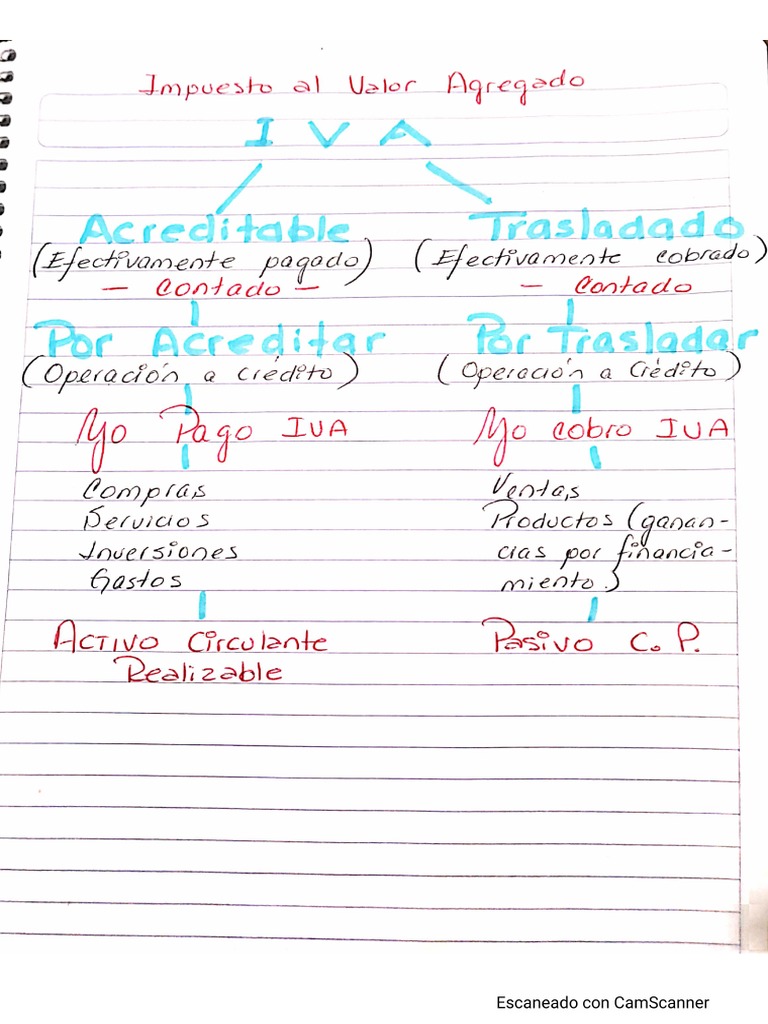 Impuesto al Valor Agregado
I V A
Acreditable
(Efectivamente pagado)
- Contado -
Por Acreditar
(Operación a crédito)
Yo Pago IVA
Compras
Servicios
Inversiones
Gastos
Activo Circulante
Realizable
Trasladado
(Efectivamente cobrado)
- Contado
Por Trasladar
(Operación a Crédito)
Yo cobro IVA
Ventas
Productos (ganan-
cias por financia-
miento.)
Pasivo C. P.
Escaneado con CamScanner